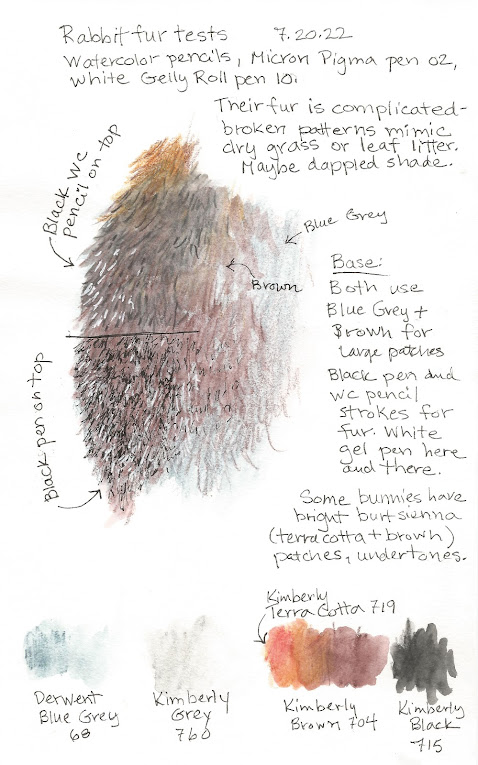 Rabbit fur tests 7.20.22
Watercolor pencils, Micron Pigma pen 02,
White Gelly Roll pen 10.
Their fur is complicated-
broken patterns mimic
dry grass or leaf litter.
Maybe dappled shade.
Black WC
pencil on top
Blue Grey
Brown
Base:
Both use
Blue Grey +
Brown for
large patches
Black pen and
WC pencil
strokes for
fur. White
gel pen here
and there.
Black pen on top
Some bunnies have
bright burtsienna
(terra cotta + brown)
patches, undertones.
Kimberly
Terra Cotta 719
Derwent
Blue Grey
68
Kimberly
Grey
760
Kimberly
Brown 704
Kimberly
Black
715